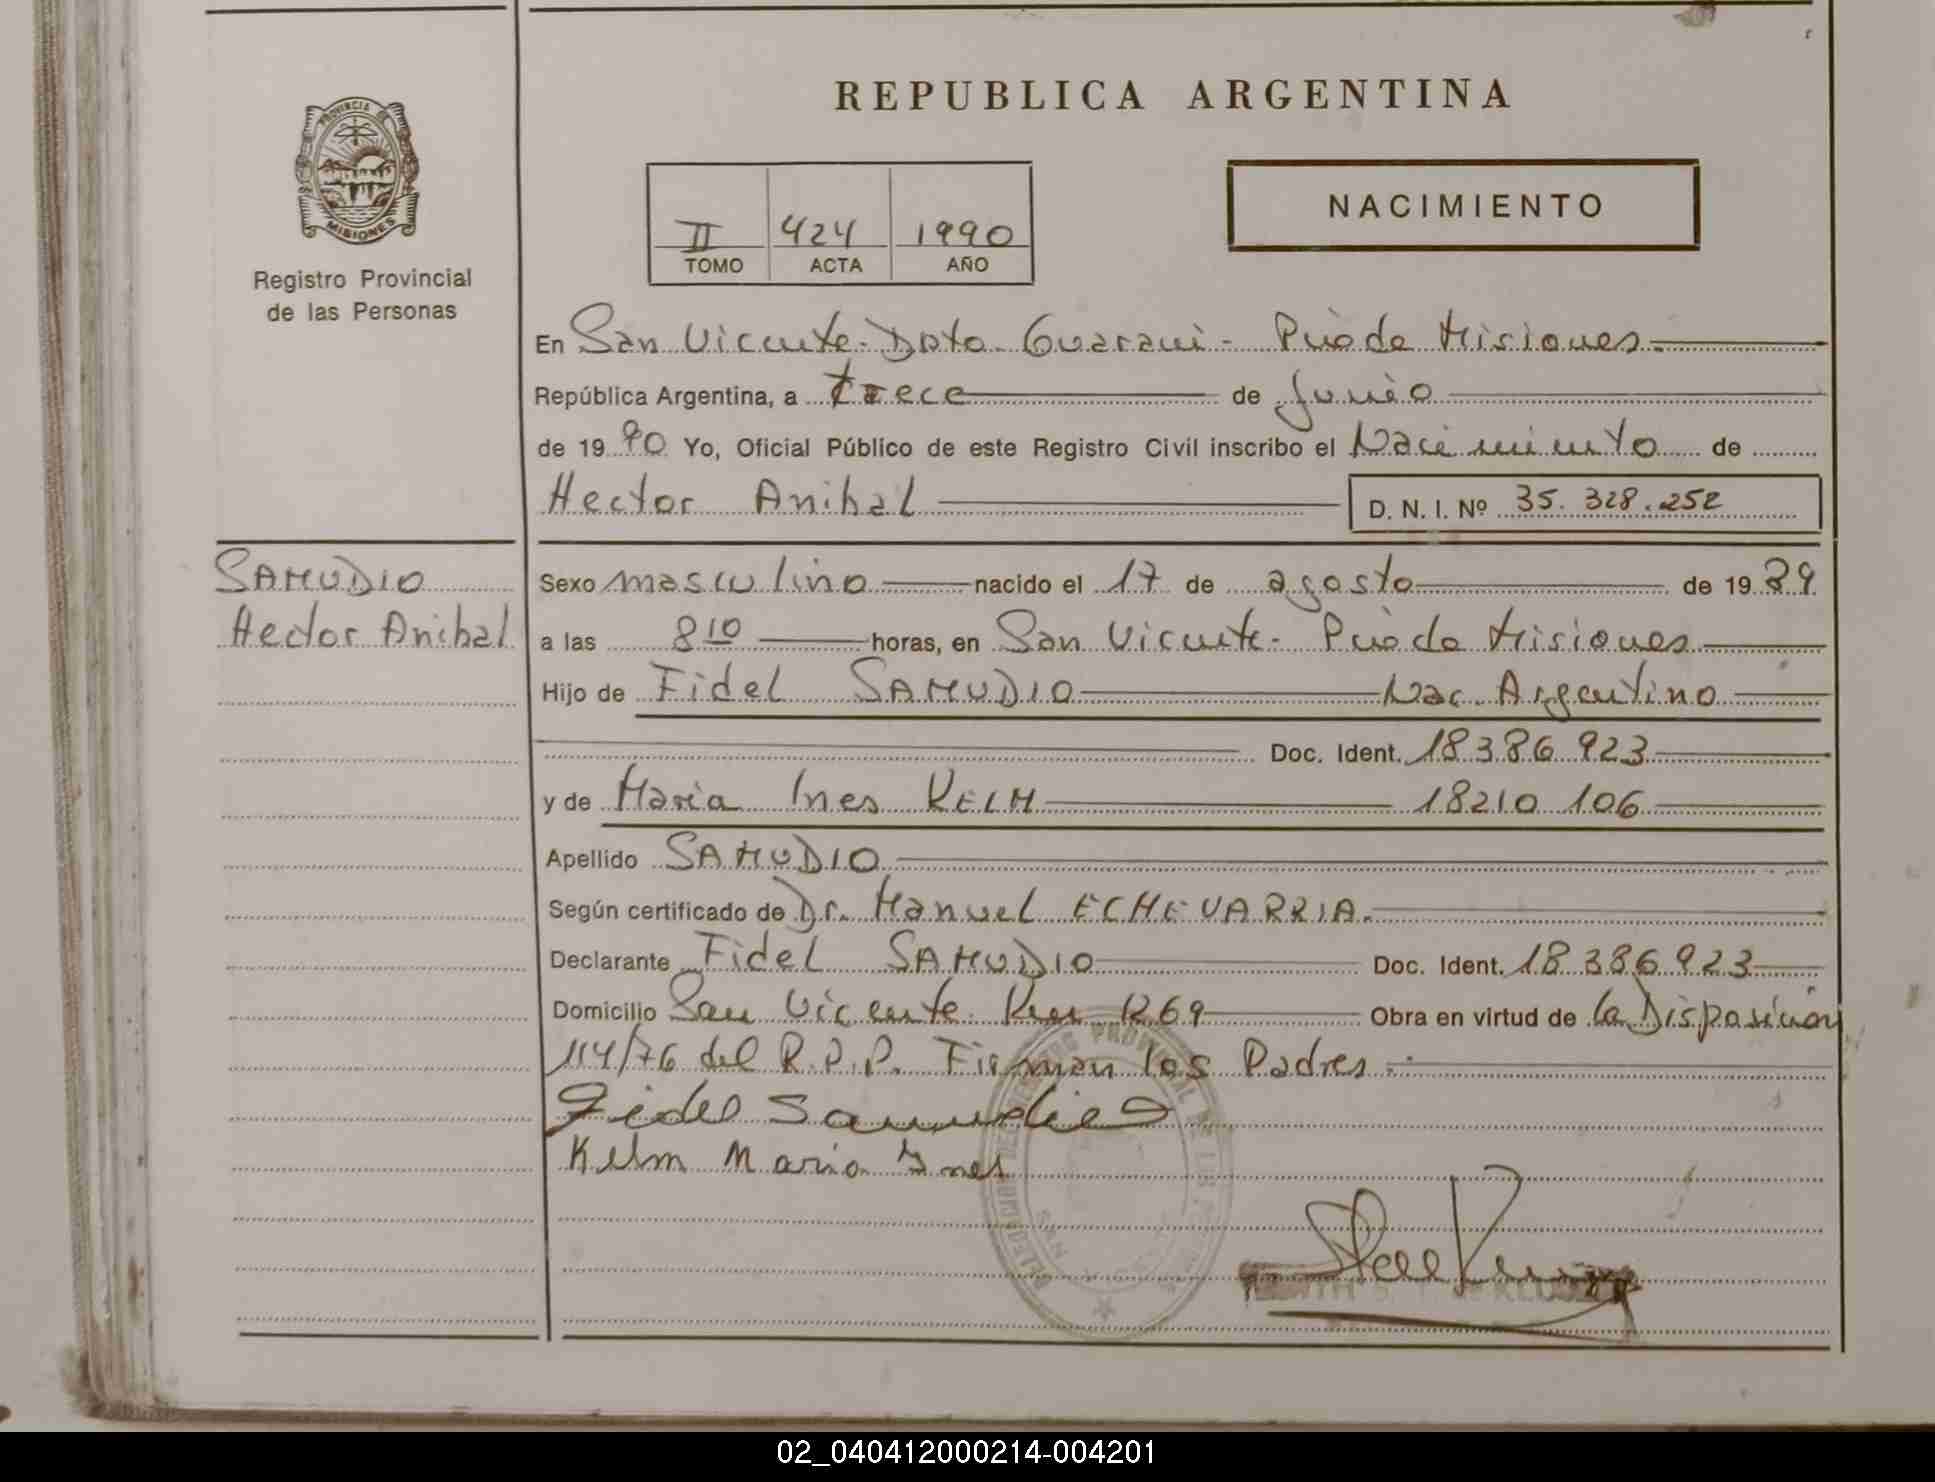 REPUBLICA ARGENTINA
PROVINCIA DE
MISIONES
Registro Provincial
de las Personas
II 424 1990
TOMO ACTA AÑO
NACIMIENTO
En San Vicente - Dpto. Guaraní - Pcia de Misiones
República Argentina, a trece de Junio
de 1990 Yo, Oficial Público de este Registro Civil inscribo el Nacimiento de
Hector Anibal D. N. I. Nº 35.328.252
SAMUDIO
Hector Anibal
Sexo masculino nacido el 17 de agosto de 1989
a las 8 10 horas, en San Vicente - Pcia de Misiones
Hijo de Fidel SAMUDIO Nac. Argentino
Doc. Ident. 18386923
y de Maria Ines KELM 18210106
Apellido SAMUDIO
Según certificado de Dr. Manuel ECHEVARRIA.
Declarante Fidel SAMUDIO Doc. Ident. 18386923
Domicilio San Vicente Km 1269 Obra en virtud de la Disposición
114/76 del R.P.P. Firman los Padres.
Fidel Samudio
Kelm Maria Ines
02_040412000214-004201